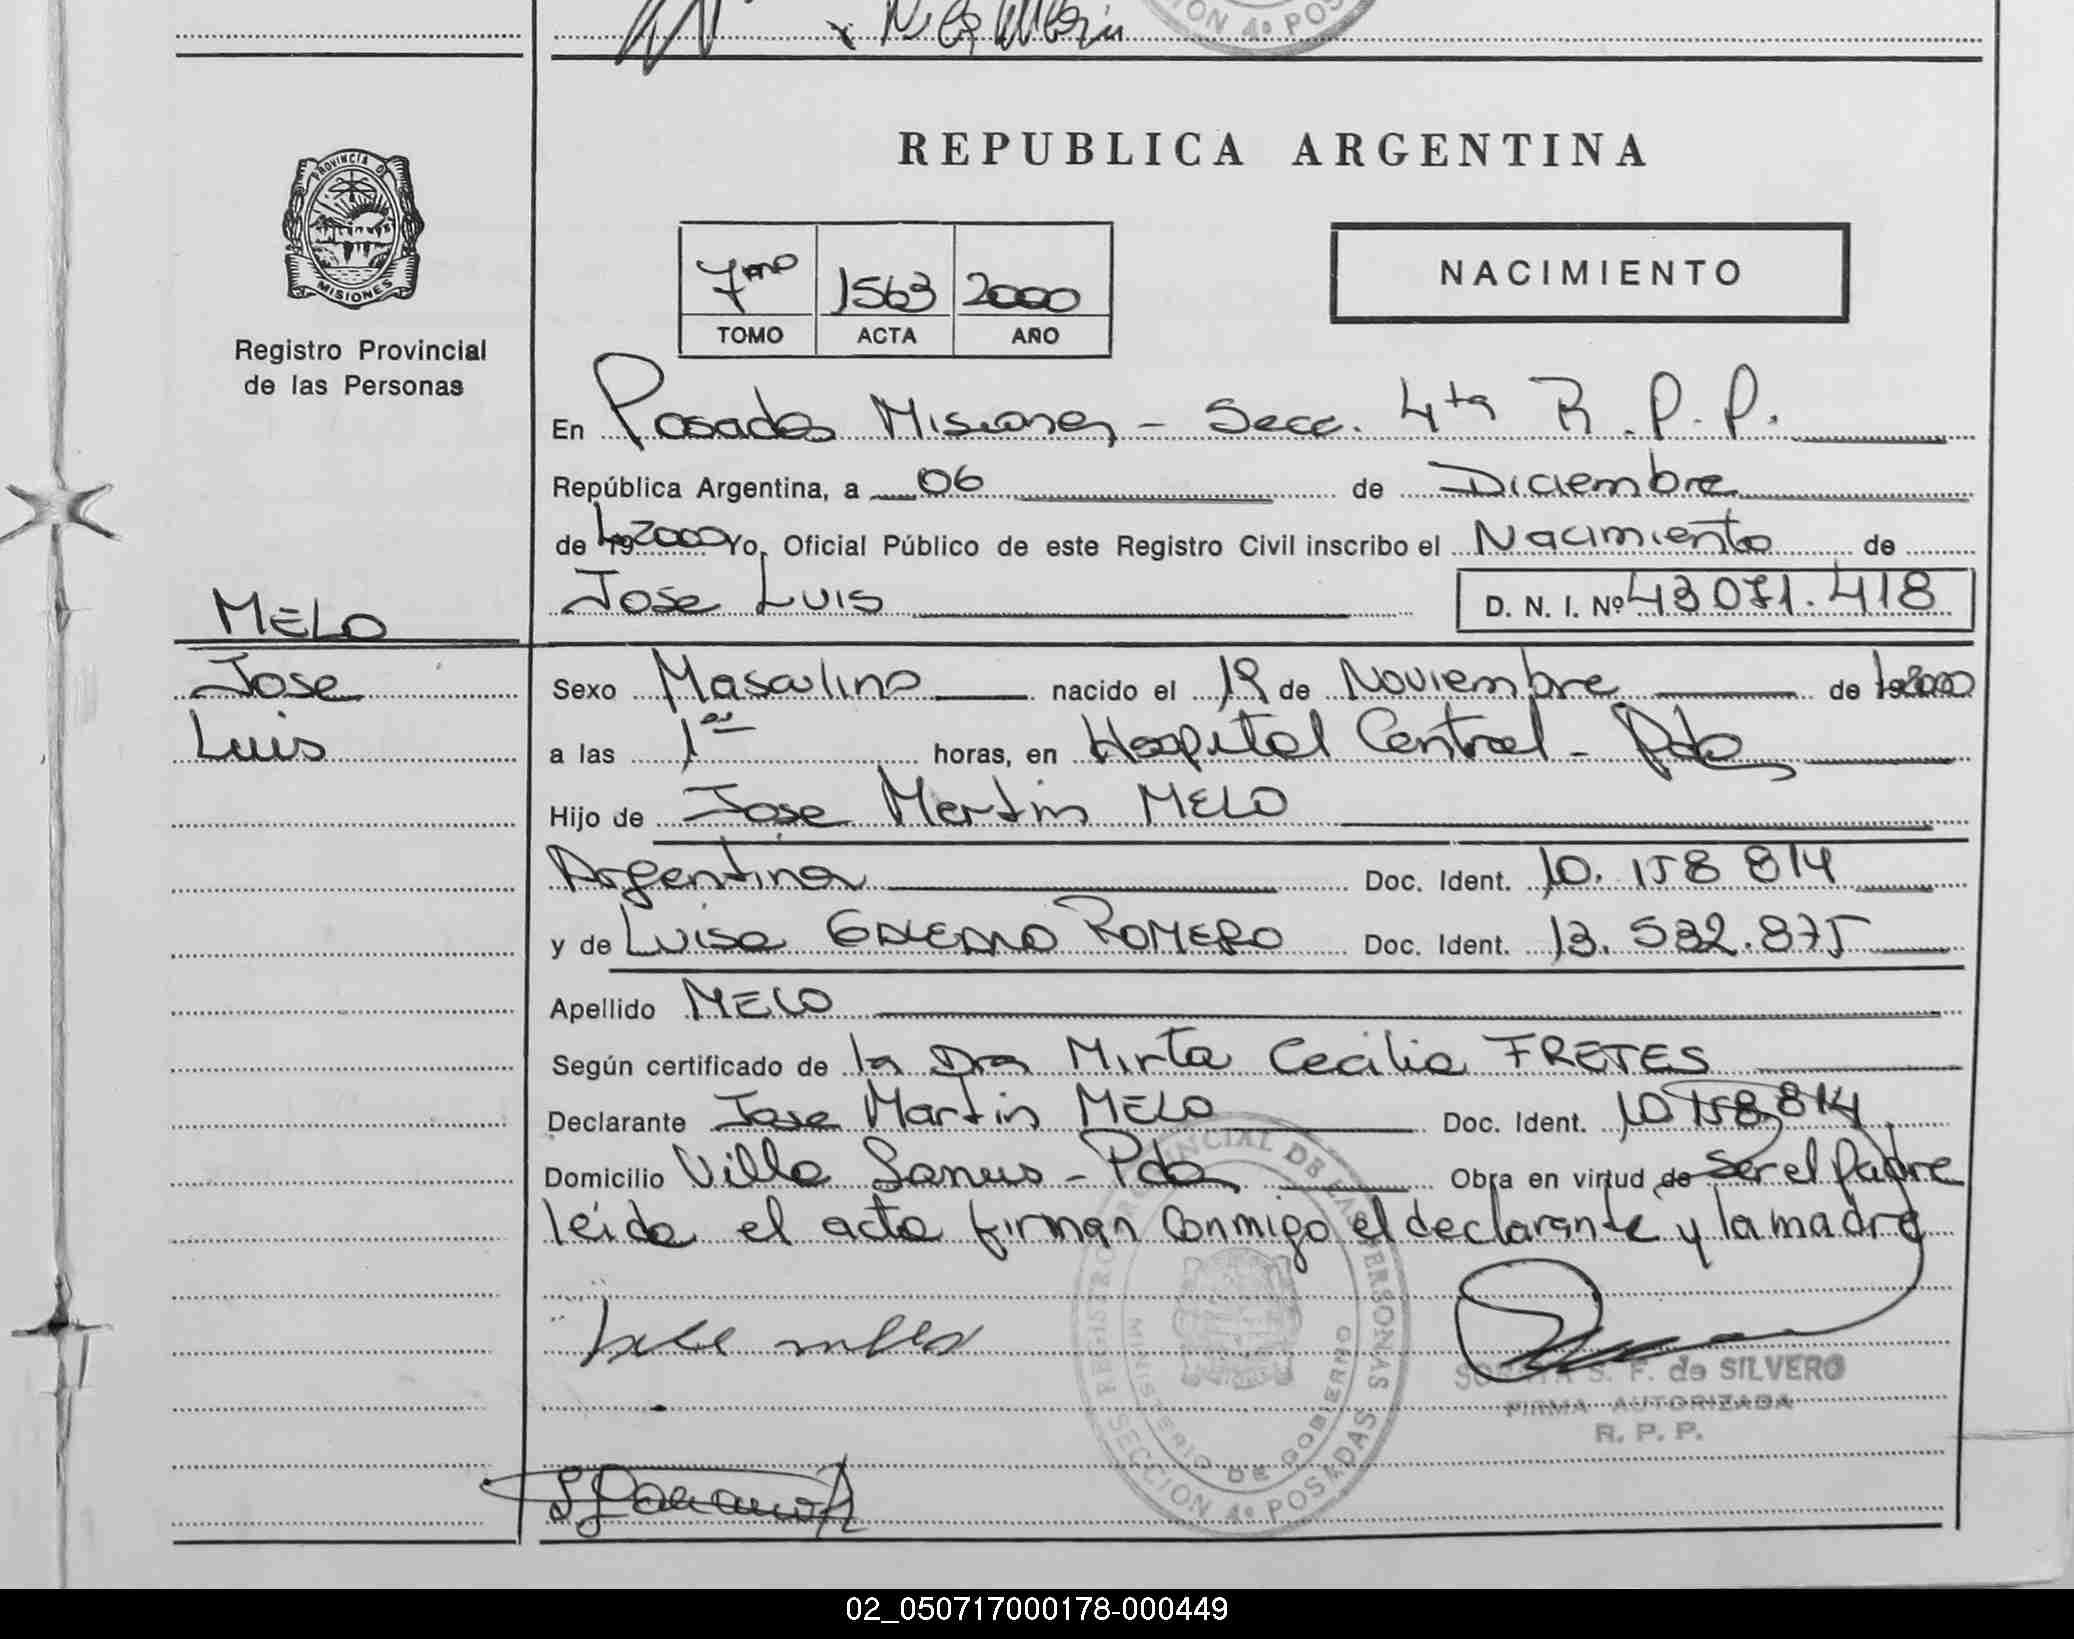 ION 4º POS
PROVINCIA DE
MISIONES
Registro Provincial
de las Personas
REPUBLICA ARGENTINA
7mo 1563 2000
TOMO ACTA AÑO
NACIMIENTO
En Posadas Misiones - Secc. 4ta R.P.P.
República Argentina, a 06 de Diciembre
de 19 2000 Yo, Oficial Público de este Registro Civil inscribo el Nacimiento de
Jose Luis D. N. I. Nº 43 071.418
MELO
Jose
Luis
Sexo Masculino nacido el 19 de Noviembre de 19 2000
a las 1 horas, en Hospital Central - Pdas
Hijo de Jose Martin MELO
Argentina Doc. Ident. 10. 158 814
y de Luisa GALEANO ROMERO Doc. Ident. 13. 532.875
Apellido MELO
Según certificado de la Dra Mirta Cecilia FRETES
Declarante Jose Martin MELO Doc. Ident. 10 158 814
Domicilio Villa Lanus - Pdas Obra en virtud de ser el padre
leida el acta firman conmigo el declarante y la madre
REGISTRO PROVINCIAL DE LAS PERSONAS
MINISTERIO DE GOBIERNO
SECCION 4º POSADAS
S. F. de SILVERO
FIRMA AUTORIZADA
R. P. P.
02_050717000178-000449